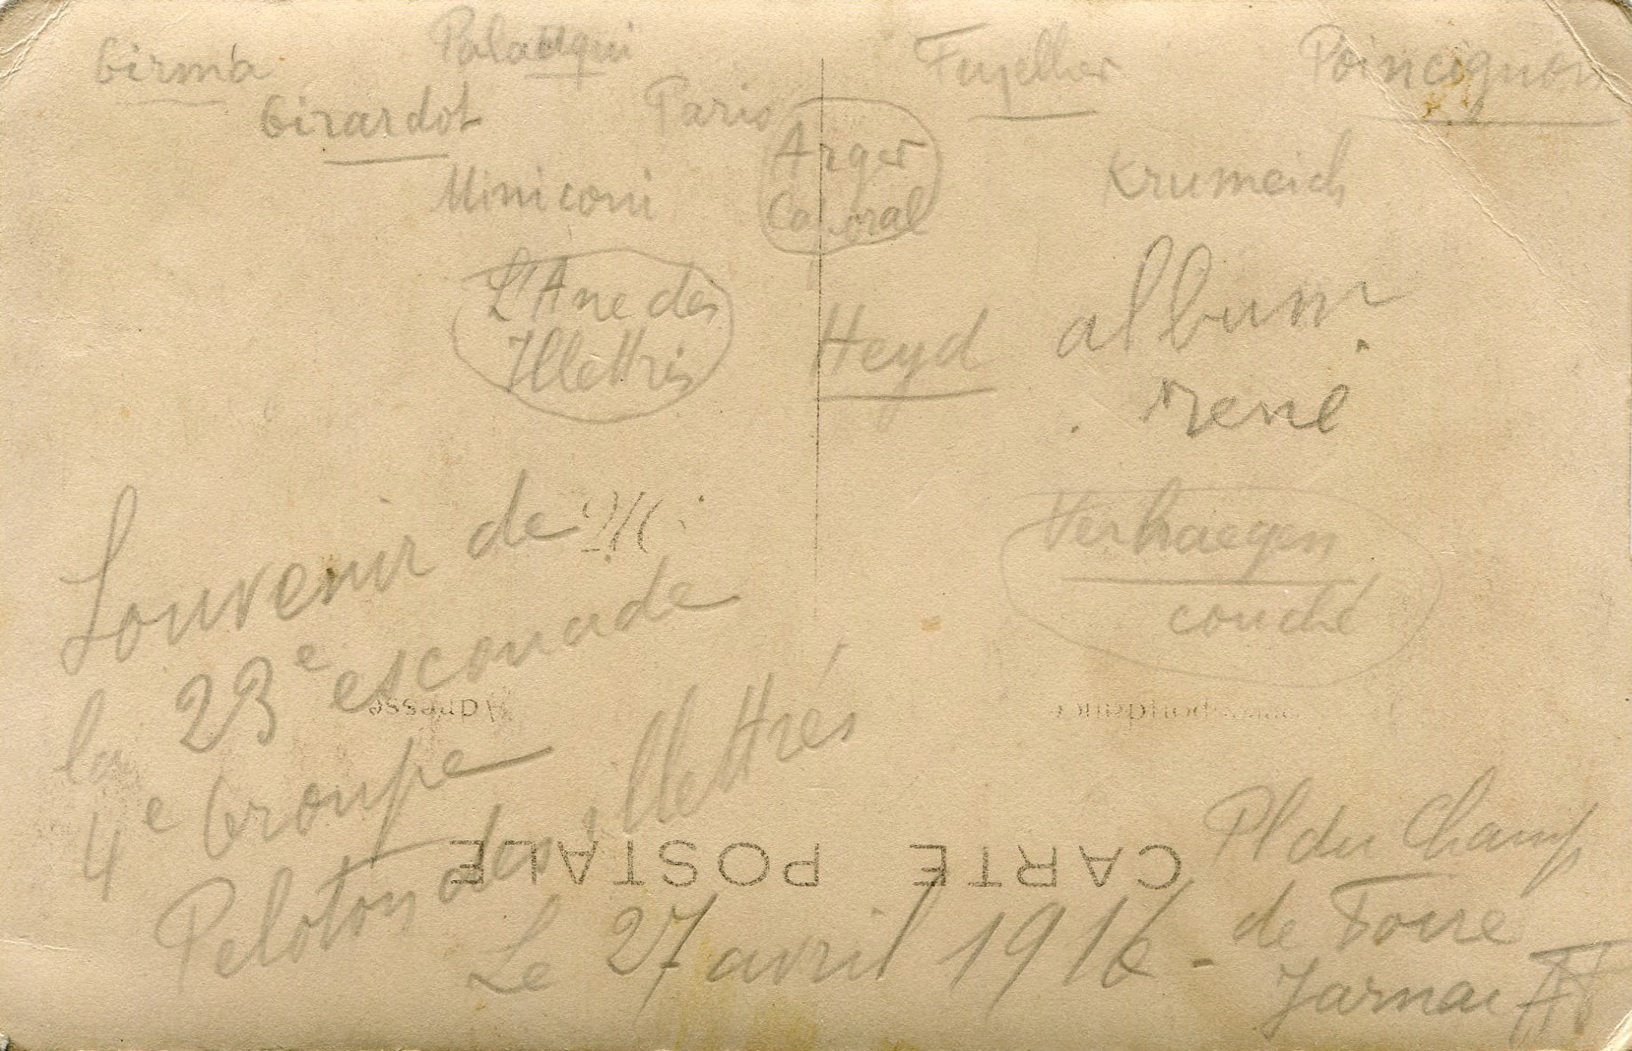 Girma
Girardot
Paris
Miniconi
Arger
Caporal
Poincignon
Krumeich
L'Ane des
Illettrés
Heyd
album
rené
Verhaegen
couché
Souvenir de
la 23e escouade
4e Groupe
Peloton des illettrés
Le 27 avril 1916 -
Pl du Champ
de Foire
Jarnac
Adresse
Correspondance
CARTE POSTALE